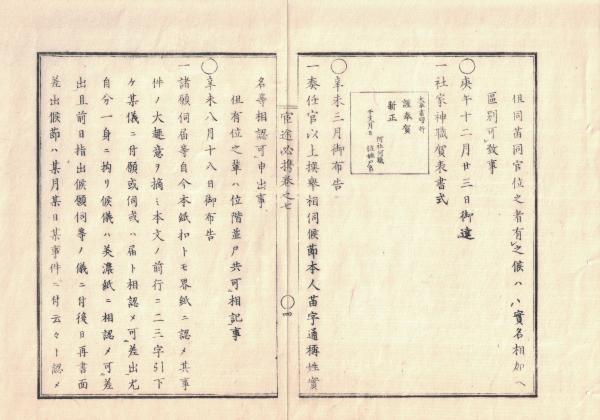 但同苗同官位之者有之候ハヽ實名相加へ
區別可致事
○庚午十二月廿三日御達
一社家神職賀表書式
大奉書四ツ折
謹奉賀
新正
何社何職
干支月日 位姓尸名
○辛未三月御布告
一奏任官以上撰擧相伺候節本人苗字通稱姓實
官途必携巻之七
○四
名等相認可申出事
但有位之輩ハ位階並尸共可相記事
○辛未八月十八日御布告
一諸願伺届等自今本紙扣トモ界紙ニ認メ其事
件ノ大趣意ヲ摘ミ本文ノ前行ニ二三字引下
ケ某儀ニ付願或伺或ハ届ト相認メ可差出尤
自分一身ニ拘リ候儀ハ美濃紙ニ相認メ可差
出且前日指出候願伺等ノ儀ニ付後日再書面
差出候節ハ某月某日某事件ニ付云々ト認メ